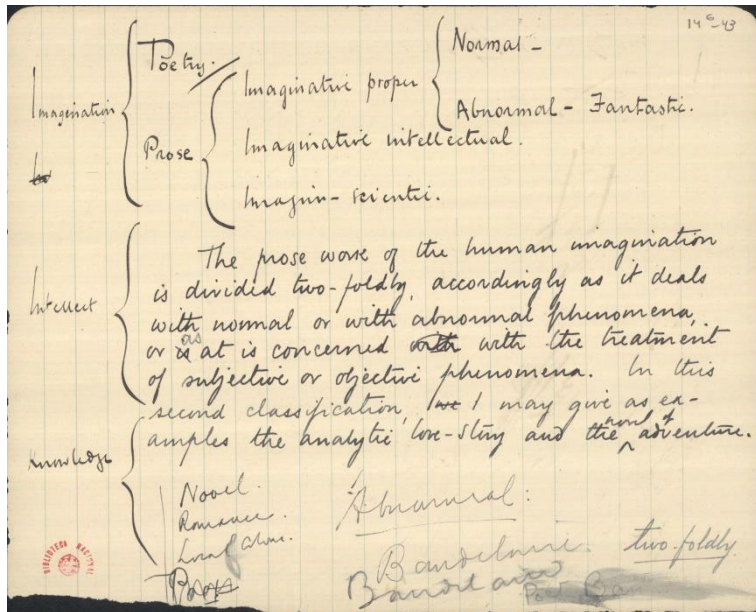 14 6-43
Imagination
Poetry.
Prose
Imaginative proper
Normal -
Abnormal - Fantastic.
Imaginative intellectual.
Imagin - scientic.
Intellect
The prose work of the human imagination
is divided two-foldly, accordingly as it deals
with normal or with abnormal phenomena,
or as at is concerned with with the treatment
of subjective or objective phenomena. In this
second classification, I may give as ex-
amples the analytic love-story and the novel of adventure.
Knowledge
Novel.
Romance.
Local
Abnormal:
Baudelaire.
two-foldly
Baudelaire
Poe
BIBLIOTECA NACIONAL